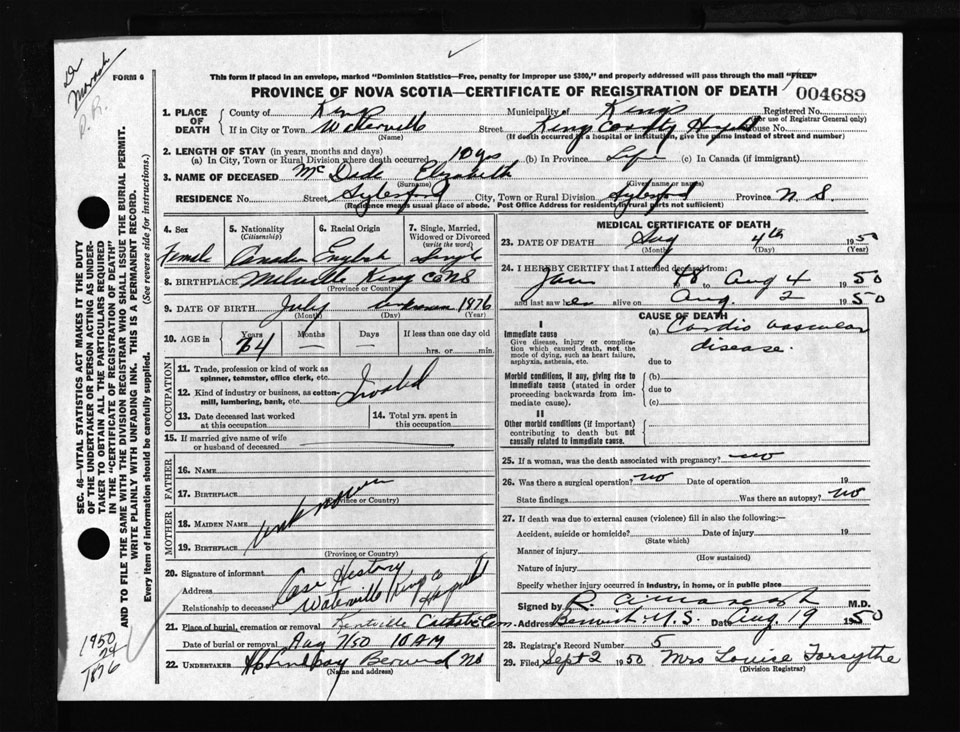 FORM 6
This form if placed in an envelope, marked "Dominion Statistics—Free, penalty for improper use $300," and properly addressed will pass through the mail "FREE"
PROVINCE OF NOVA SCOTIA—CERTIFICATE OF REGISTRATION OF DEATH
004689
1. PLACE OF DEATH
County of Kings Municipality of Kings Registered No.
(For use of Registrar General only)
If in City or Town Waterville Street Kings County Hospital House No.
(Name) (If death occurred in a hospital or institution, give the name instead of street and number)
2. LENGTH OF STAY (in years, months and days)
(a) In City, Town or Rural Division where death occurred 10 yrs (b) In Province Life (c) In Canada (if immigrant)
3. NAME OF DECEASED McDade Elizabeth
(Surname) (Given name or names)
RESIDENCE No. Street Aylesford City, Town or Rural Division Aylesford Province N.S.
(Residence means usual place of abode. Post Office Address for residents in rural parts not sufficient)
4. Sex
Female
5. Nationality
(Citizenship)
Canadian
6. Racial Origin
English
7. Single, Married, Widowed or Divorced
(write the word)
Single
8. BIRTHPLACE Melville Kings Co NS
(Province or Country)
9. DATE OF BIRTH July unknown 1876
(Month) (Day) (Year)
10. AGE in
Years Months Days If less than one day old
74 — — hrs. or min.
OCCUPATION
11. Trade, profession or kind of work as spinner, teamster, office clerk, etc.
12. Kind of industry or business, as cotton-mill, lumbering, bank, etc.
13. Date deceased last worked at this occupation
14. Total yrs. spent in this occupation
15. If married give name of wife or husband of deceased
FATHER
16. NAME
17. BIRTHPLACE
(Province or Country)
unknown
MOTHER
18. MAIDEN NAME
19. BIRTHPLACE
(Province or Country)
20. Signature of informant Case History
Address Waterville Kings Co
Relationship to deceased Hospital
21. Place of burial, cremation or removal Kentville Catholic Cem.
Date of burial or removal Aug 7/50 10 AM
22. UNDERTAKER Berwick NS
(Name and address)
MEDICAL CERTIFICATE OF DEATH
23. DATE OF DEATH Aug 4th 1950
(Month) (Day) (Year)
24. I HEREBY CERTIFY that I attended deceased from:
Jan to Aug 4 1950
and last saw her alive on Aug. 2 1950
CAUSE OF DEATH
I
Immediate cause
Give disease, injury or complication which caused death, not the mode of dying, such as heart failure, asphyxia, asthenia, etc.
(a) Cardio vascular disease.
due to
Morbid conditions, if any, giving rise to immediate cause (stated in order proceeding backwards from immediate cause).
(b)
due to
(c)
II
Other morbid conditions (if important) contributing to death but not causally related to immediate cause.
25. If a woman, was the death associated with pregnancy? no
26. Was there a surgical operation? no Date of operation 19
State findings Was there an autopsy? no
27. If death was due to external causes (violence) fill in also the following:—
Accident, suicide or homicide? Date of injury 19
(State which)
Manner of injury
(How sustained)
Nature of injury
Specify whether injury occurred in industry, in home, or in public place
Signed by M.D.
Address Berwick N.S. Date Aug 19 1950
28. Registrar's Record Number 5
29. Filed Sept 2 1950 Mrs Louise Forsythe
(Division Registrar)
SEC. 46—VITAL STATISTICS ACT MAKES IT THE DUTY
OF THE UNDERTAKER OR PERSON ACTING AS UNDER-
TAKER TO OBTAIN ALL THE PARTICULARS REQUIRED
IN THE "CERTIFICATE OF REGISTRATION OF DEATH"
AND TO FILE THE SAME WITH THE DIVISION REGISTRAR WHO SHALL ISSUE THE BURIAL PERMIT.
WRITE PLAINLY WITH UNFADING INK. THIS IS A PERMANENT RECORD.
Every item of information should be carefully supplied. (See reverse side for instructions.)
1950
74
1876